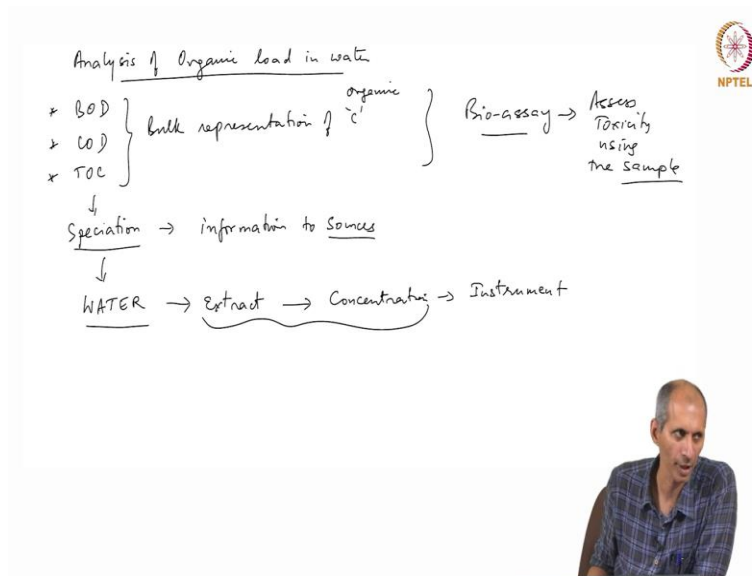 Analysis of Organic load in water
NPTEL
* BOD
* COD
* TOC
Bulk representation of organic 'C'
Bio-assay → Assess
Toxicity
using
the sample
↓
Speciation → information to sources
↓
WATER → Extract → Concentration → Instrument